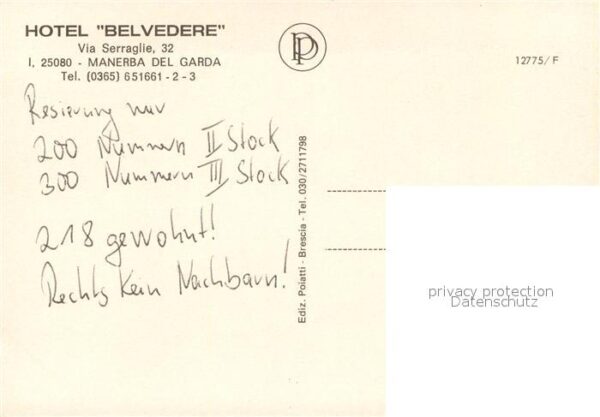 HOTEL "BELVEDERE"
Via Serraglie, 32
I. 25080 - MANERBA DEL GARDA
Tel. (0365) 651661 - 2 - 3
12775/F
Resierung nur
200 Nummern II Stock
300 Nummern III Stock
218 gewohnt!
Rechts kein Nachbarn!
Ediz. Poiatti - Brescia - Tel. 030/2711798
privacy protection
Datenschutz